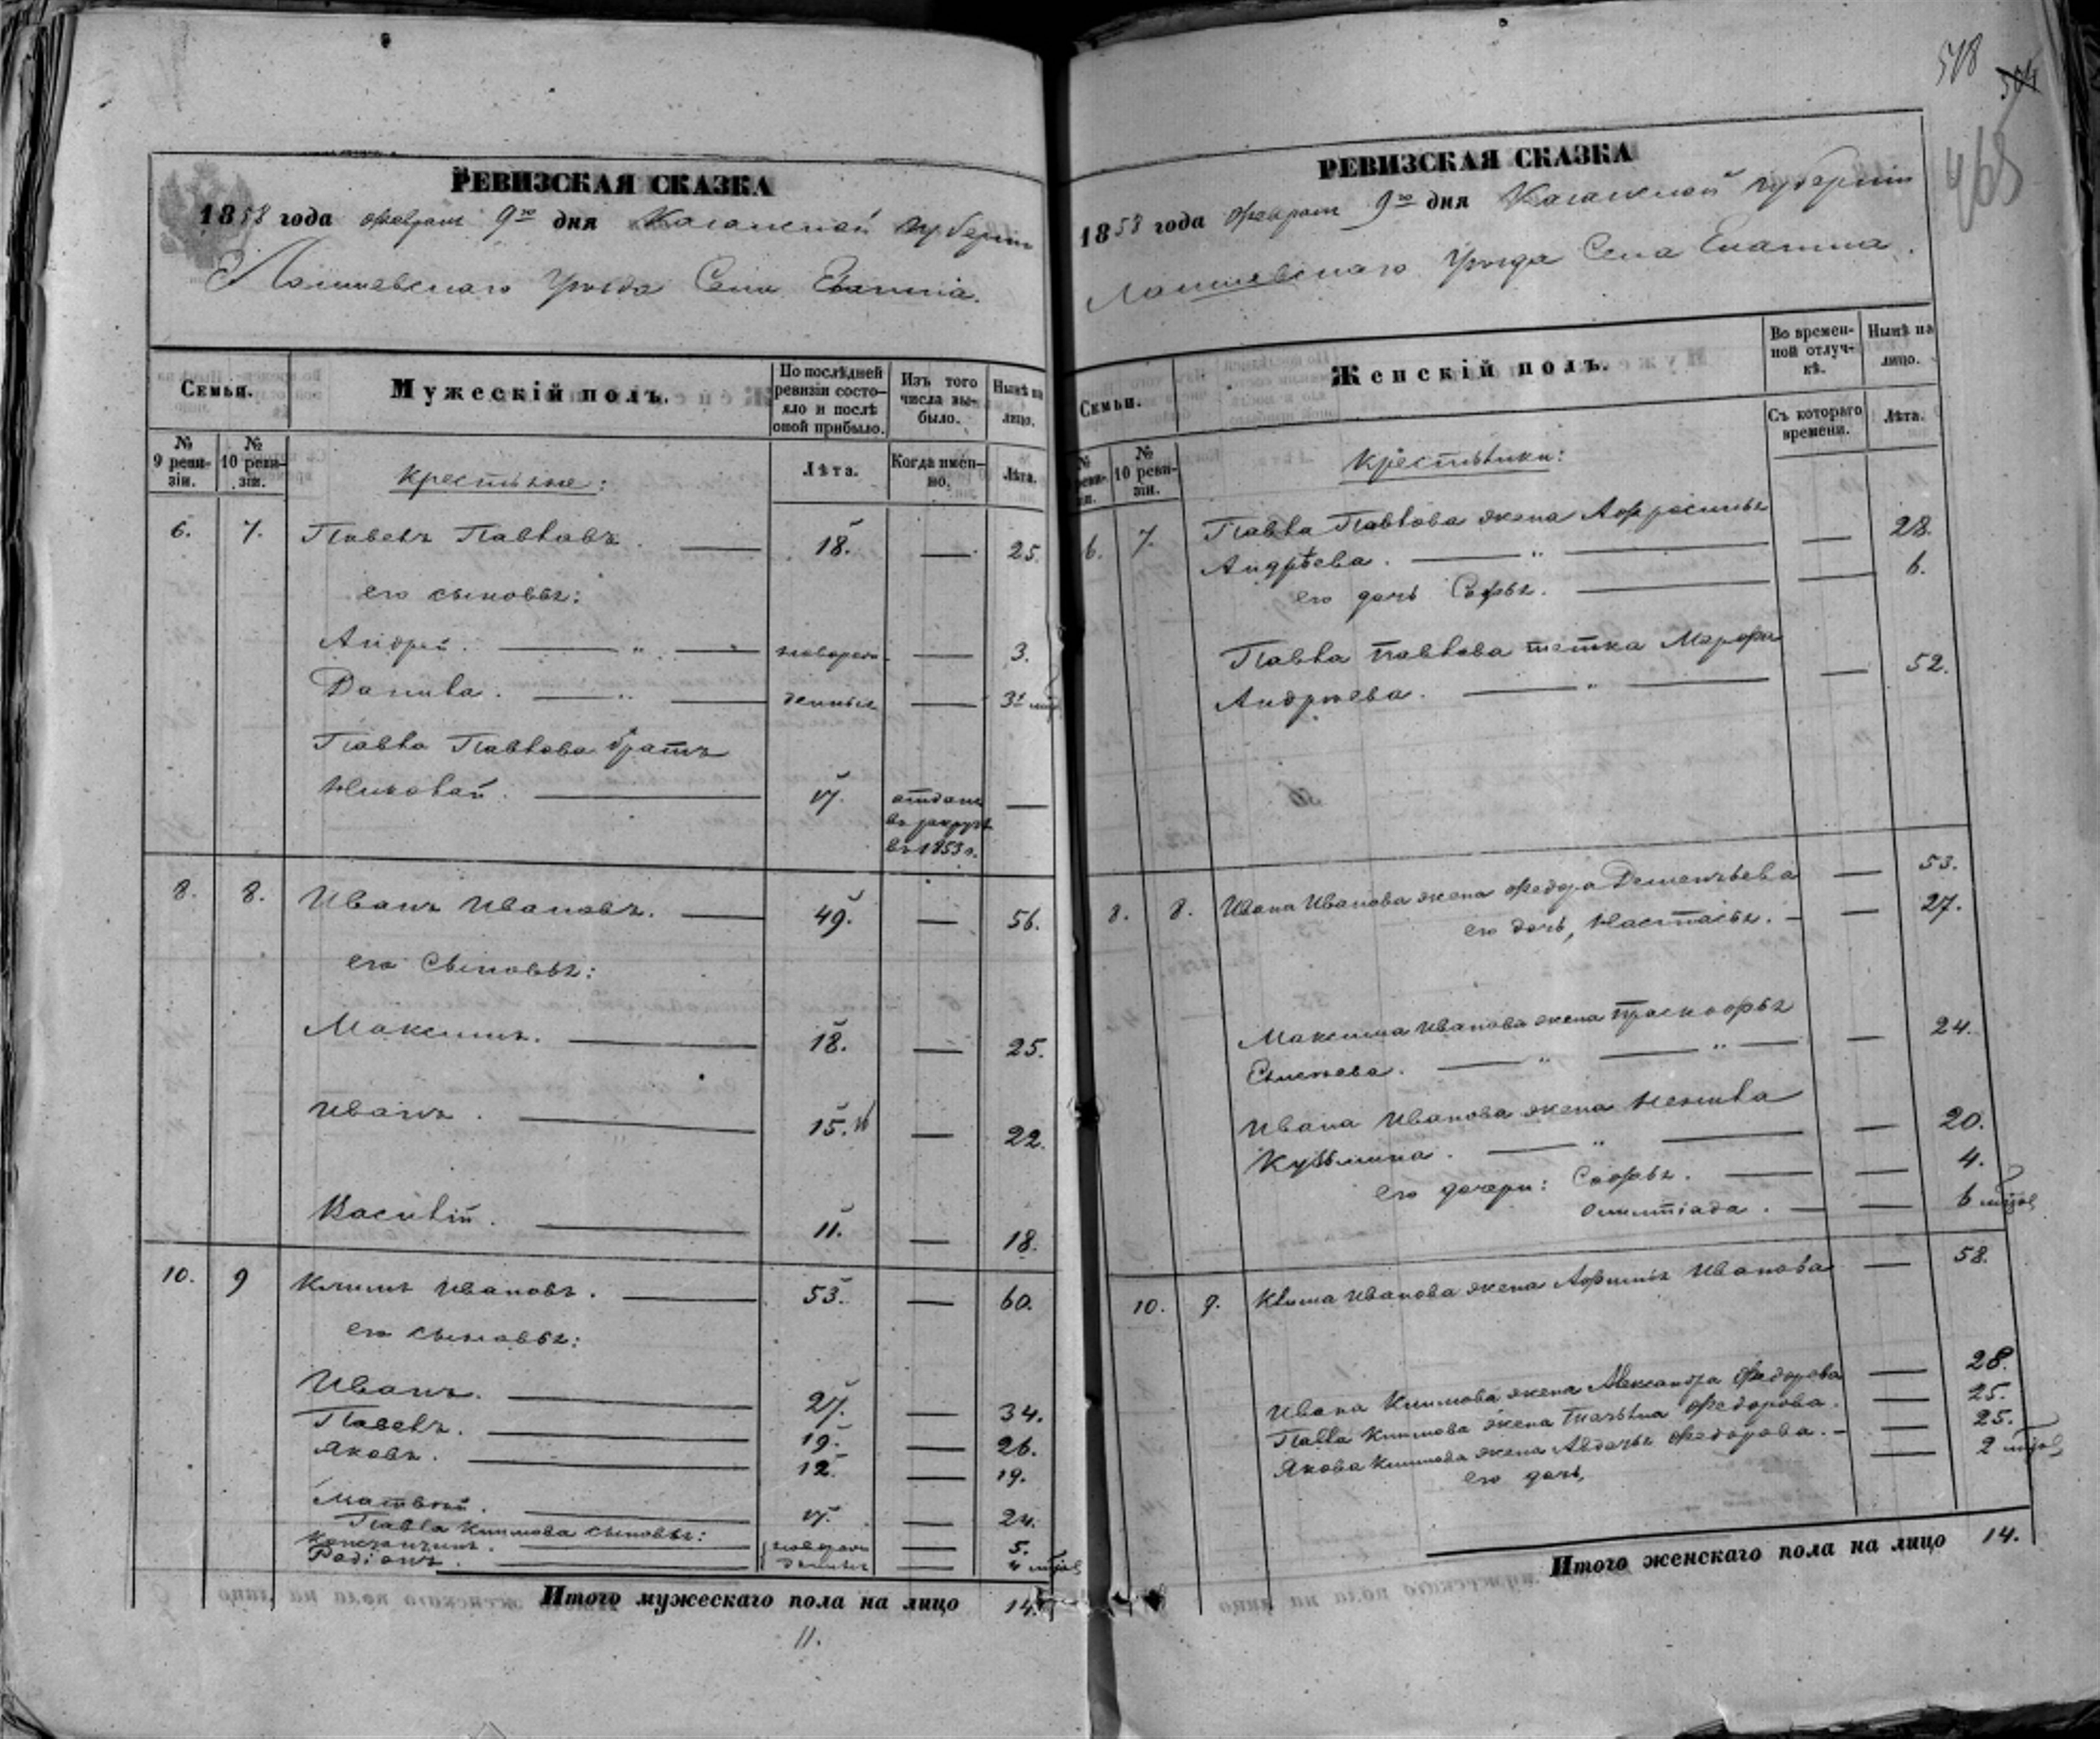 РЕВИЗСКАЯ СКАЗКА
1858 года февраля 9го дня Казанской губернии
Лаишевскаго Уѣзда Села Епанчина.
Семьи.
Мужескій полъ.
По послѣдней ревизіи состояло и послѣ оной прибыло.
Изъ того числа выбыло.
Нынѣ на лицо.
№ 9 ревизіи.
№ 10 ревизіи.
Крестьяне:
Лѣта.
Когда именно.
Лѣта.
6. 7. Павелъ Павловъ. 18. 25.
его сыновья:
Андрей. новорож- 3.
Данила. денные 3х мцъ
Павла Павлова братъ
Николай. 17. отданъ
въ рекруты
въ 1853 г.
8. 8. Иванъ Ивановъ. 49. 56.
его Сыновья:
Максимъ. 18. 25.
Иванъ. 15. 22.
Василій. 11. 18.
10. 9 Климъ Ивановъ. 53. 60.
его сыновья:
Иванъ. 27. 34.
Павелъ. 19. 26.
Яковъ. 12. 19.
Матвѣй. 17. 24.
Павла Климова сыновья:
Констянтинъ. новорож 5.
Родіонъ. денные 4 мцов
Итого мужескаго пола на лицо 14.
11.
518
504
465
РЕВИЗСКАЯ СКАЗКА
1858 года февраля 9го дня Казанской губерніи
Лаишевскаго Уѣзда Села Епанчина.
Семьи.
Женскій полъ.
Во временной отлучкѣ.
Нынѣ на лицо.
№ 10 ревизіи.
Крестьянки:
Съ котораго времени.
Лѣта.
6. 7. Павла Павлова жена Афросинья
Андрѣева. 28.
его дочь Софья. 6.
Павла Павлова тетка Марфа
Андрѣева. 52.
8. 8. Ивана Иванова жена Федора Дементьева 53.
его дочь, Настасья. 27.
Максима Иванова жена Прасковья
24.
Ивана Иванова жена Ненила
Кузьмина. 20.
его дочери: Софья. 4.
Олимпіада. 6 мцов
10. 9. Клима Иванова жена Афимья Иванова 58.
Ивана Климова жена Александра Федорова 28.
Павла Климова жена Татьяна Федорова. 25.
Якова Климова жена Авдотья Федорова. 25.
его дочь, 2 мцов
Итого женскаго пола на лицо 14.